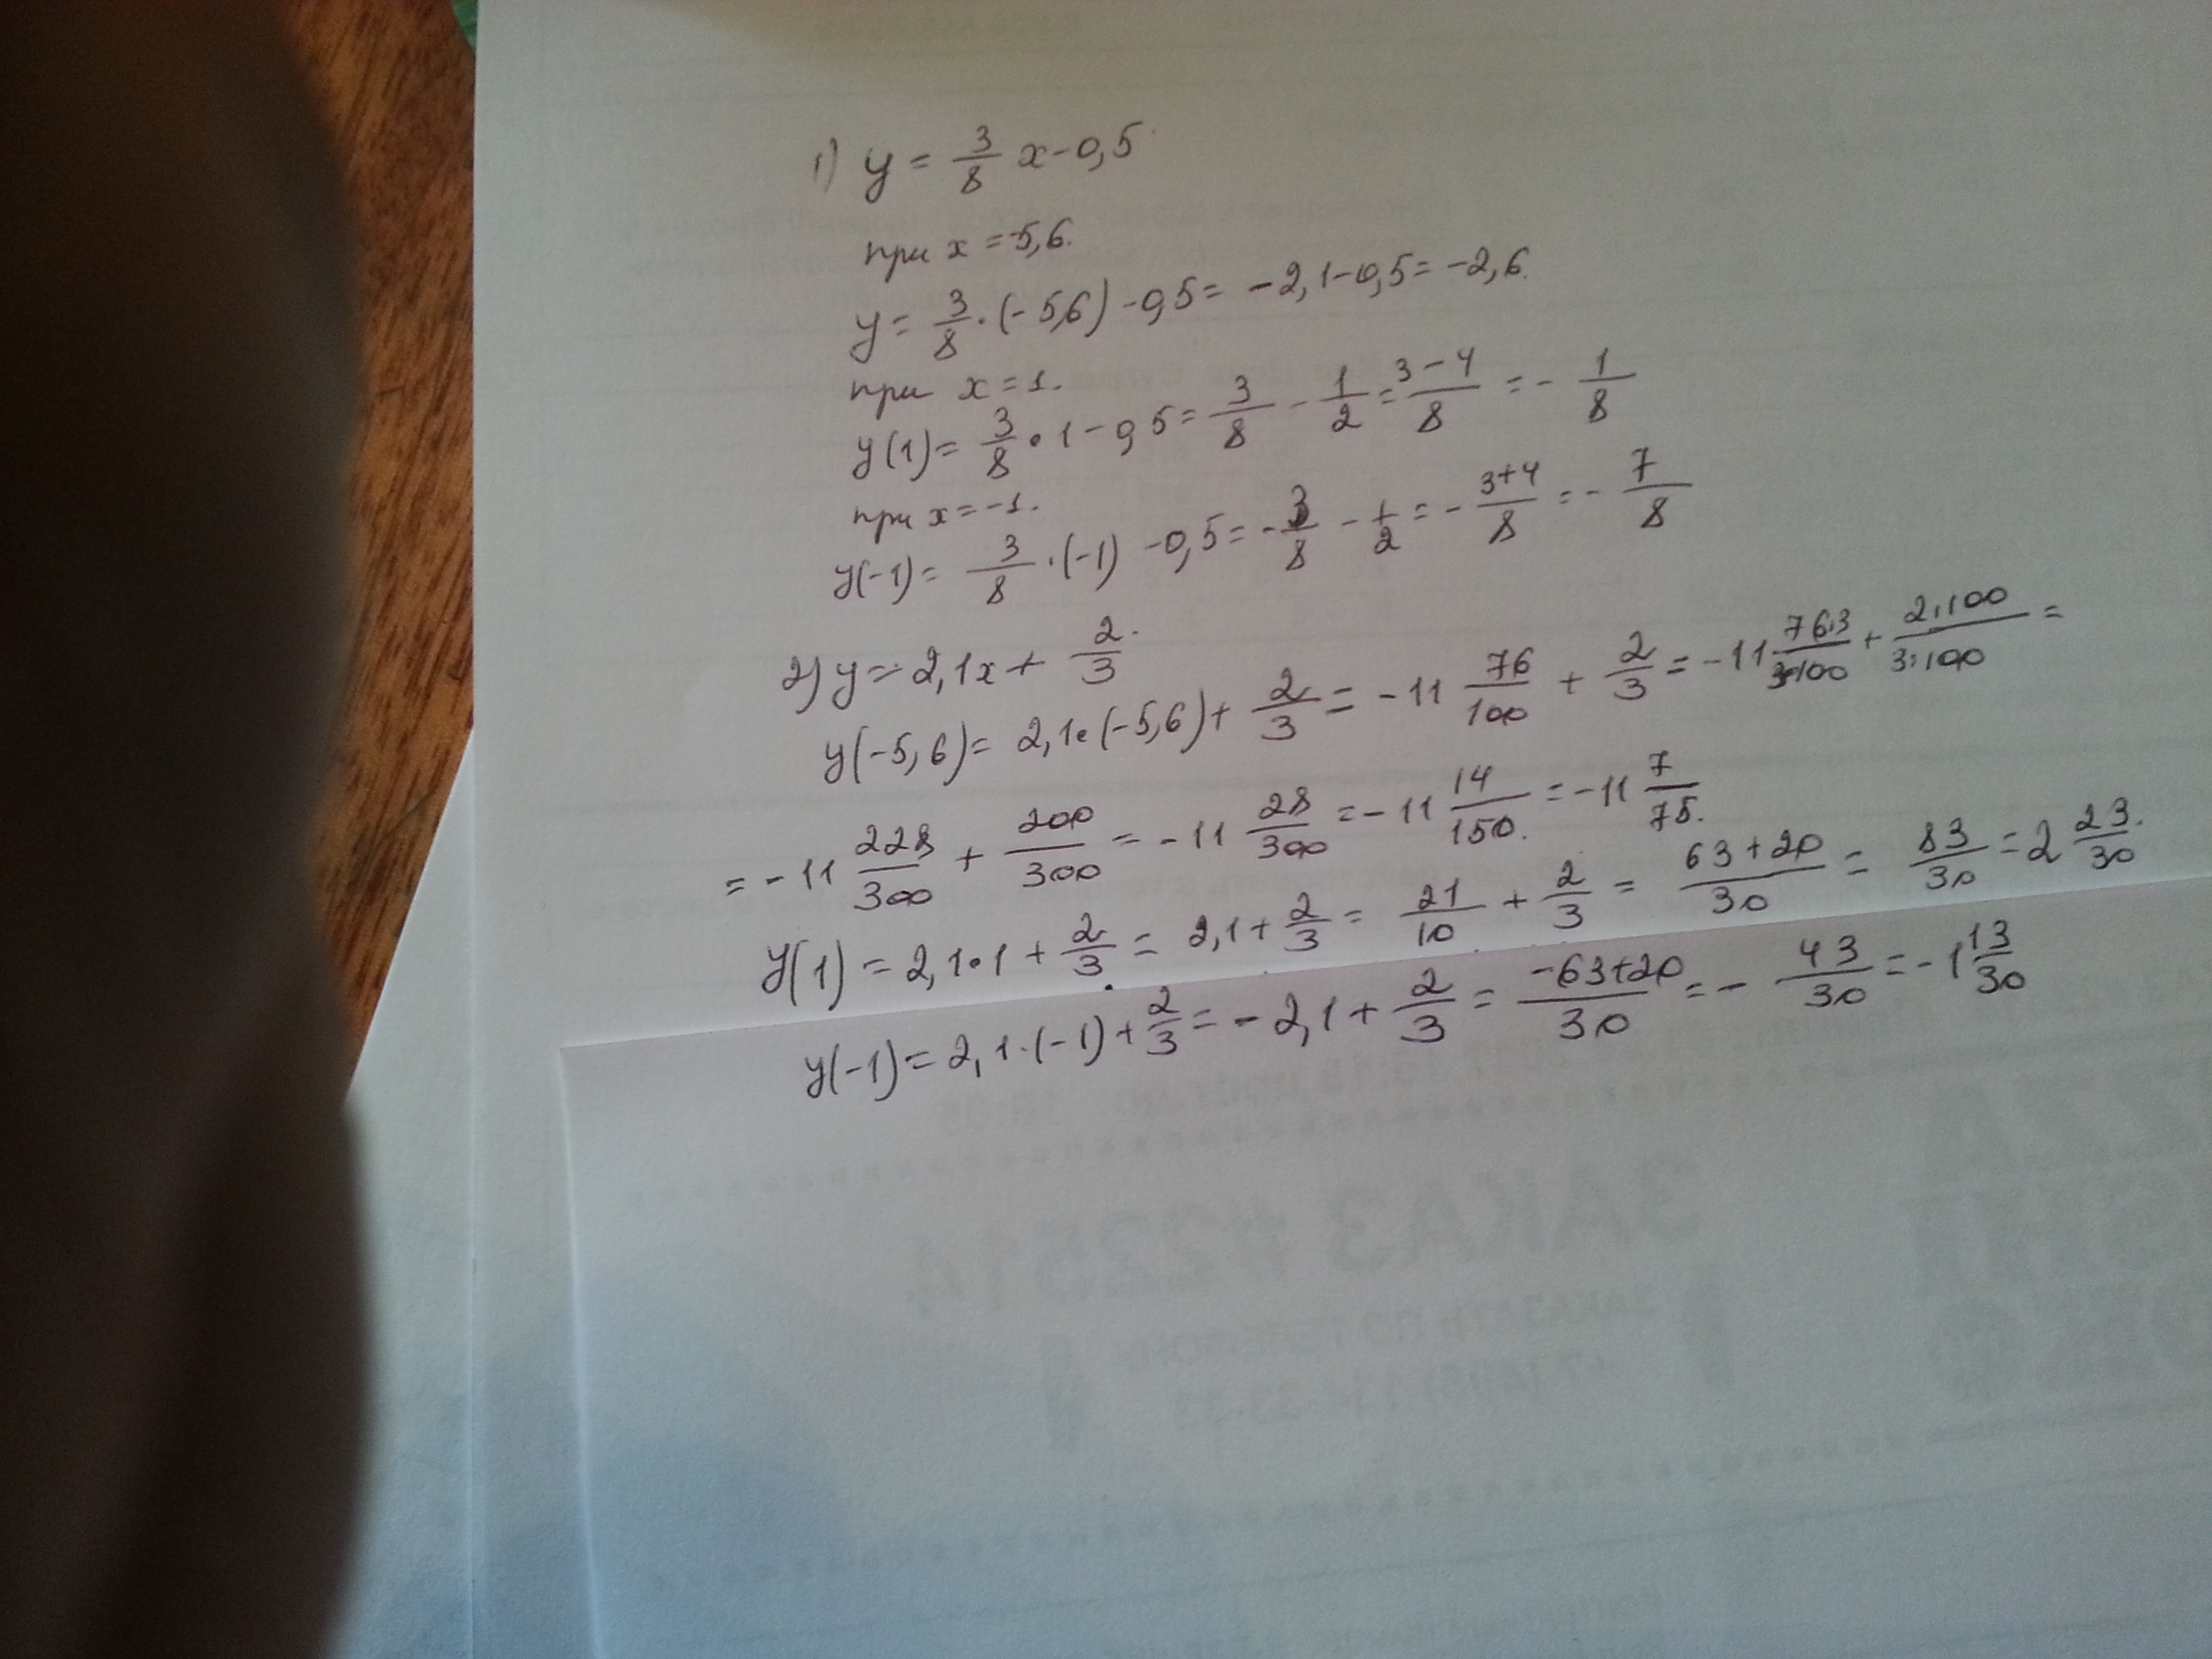 1) y = 3/8 x - 0,5
при x = -5,6.
y = 3/8 · (-5,6) - 0,5 = -2,1 - 0,5 = -2,6.
при x = 1.
y(1) = 3/8 · 1 - 0,5 = 3/8 - 1/2 = 3-4/8 = - 1/8
при x = -1.
y(-1) = 3/8 · (-1) - 0,5 = - 3/8 - 1/2 = - 3+4/8 = - 7/8
2) y = 2,1x + 2/3.
y(-5,6) = 2,1 · (-5,6) + 2/3 = -11 76/100 + 2/3 = -11 76·3/3·100 + 2·100/3·100 =
= -11 228/300 + 200/300 = -11 28/300 = -11 14/150 = -11 7/75.
y(1) = 2,1 · 1 + 2/3 = 2,1 + 2/3 = 21/10 + 2/3 = 63+20/30 = 83/30 = 2 23/30.
y(-1) = 2,1 · (-1) + 2/3 = -2,1 + 2/3 = -63+20/30 = - 43/30 = -1 13/30
ЗАКАЗ #22514